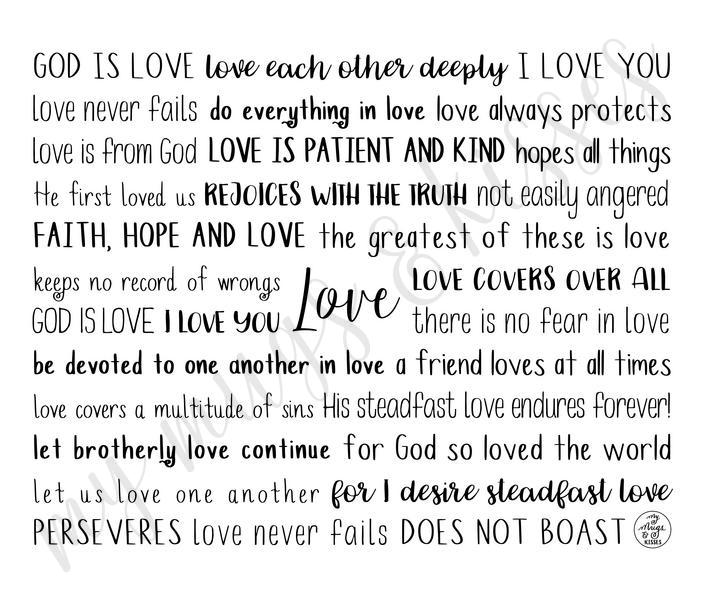 GOD IS LOVE love each other deeply I LOVE YOU
love never fails do everything in love love always protects
love is from God LOVE IS PATIENT AND KIND hopes all things
He first loved us REJOICES WITH THE TRUTH not easily angered
FAITH, HOPE AND LOVE the greatest of these is love
keeps no record of wrongs Love LOVE COVERS OVER ALL
GOD IS LOVE I LOVE YOU there is no fear in love
be devoted to one another in love a friend loves at all times
love covers a multitude of sins His steadfast love endures forever!
let brotherly love continue for God so loved the world
let us love one another for I desire steadfast love
PERSEVERES love never fails DOES NOT BOAST
my Mugs & KISSES
my mugs & kisses